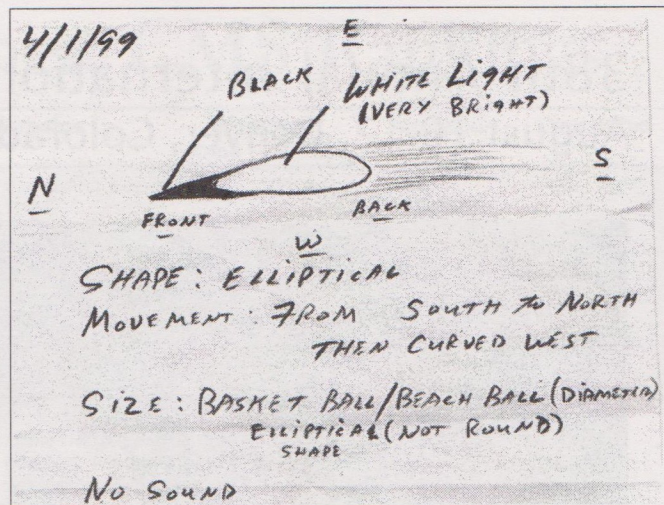 4/1/99
E
BLACK
WHITE LIGHT
(VERY BRIGHT)
N
S
FRONT
BACK
W
SHAPE: ELLIPTICAL
MOVEMENT: FROM SOUTH to NORTH
THEN CURVED WEST
SIZE: BASKET BALL/BEACH BALL (DIAMETER)
ELLIPTICAL (NOT ROUND)
SHAPE
NO SOUND